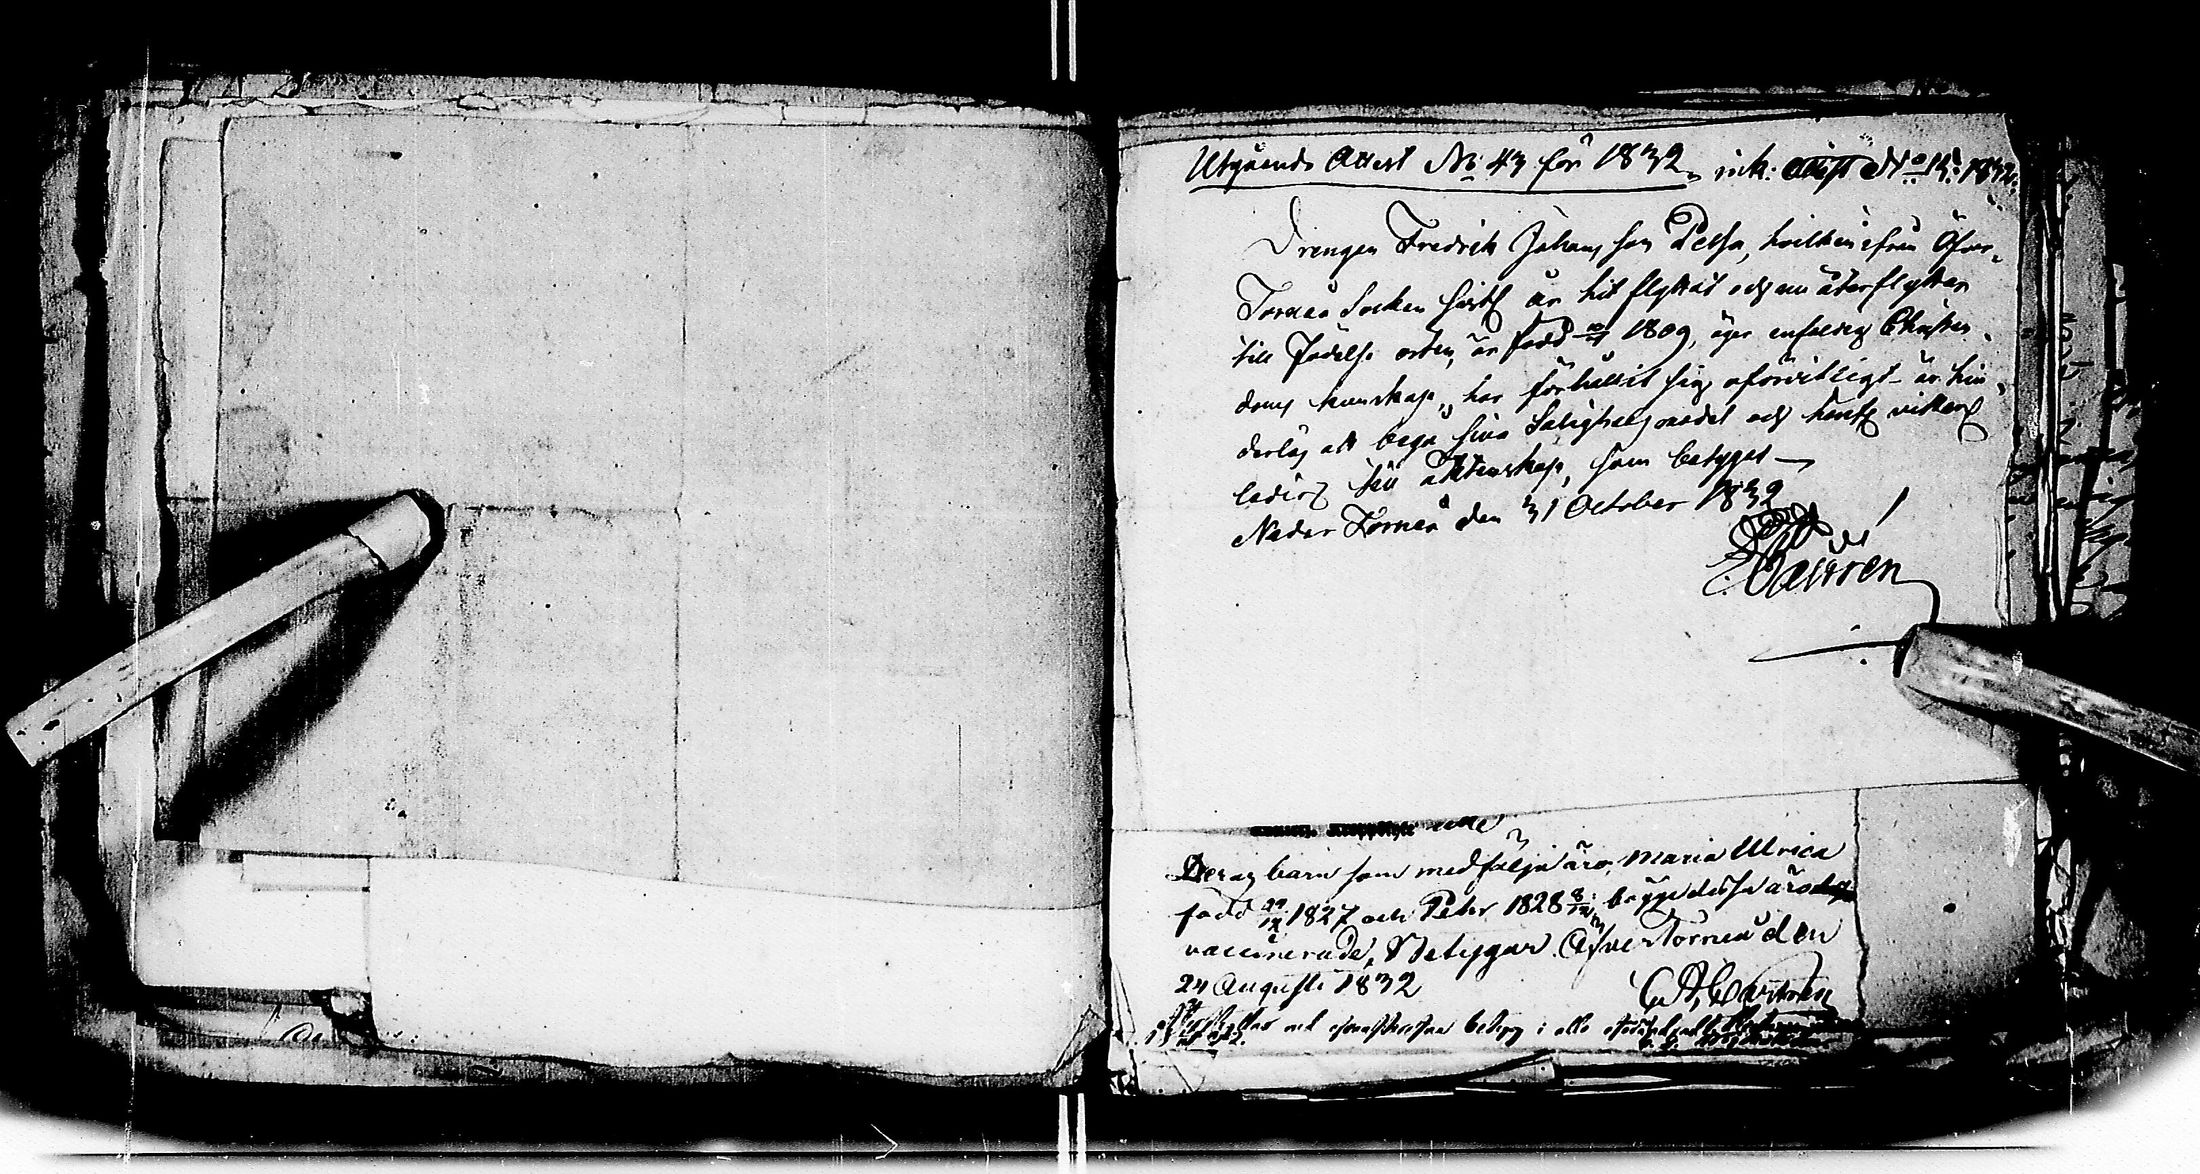 Utgående Attest No 43 för 1832. ink: No 15. 1832.
Drengen Fredrik Johans son Pelsa, hvilken ifrån Öfver
Torneå Socken sistl är hit flyttat och nu återflyttar
till födelse orten, är född 1809, äger enfaldig Christen
doms kunskap, har förhållit sig oförvitligt är hin
derlös att begå sina Salighets medel och
ledig till äktenskap, som betygas
Neder Torneå den 31 October 1832
barn som medfölja äro, Maria Ulrica
född 1827 och Peter 1828 begge dessa äro
vaccinerade, Betygar Öfver Torneå den
24 Augusti 1832